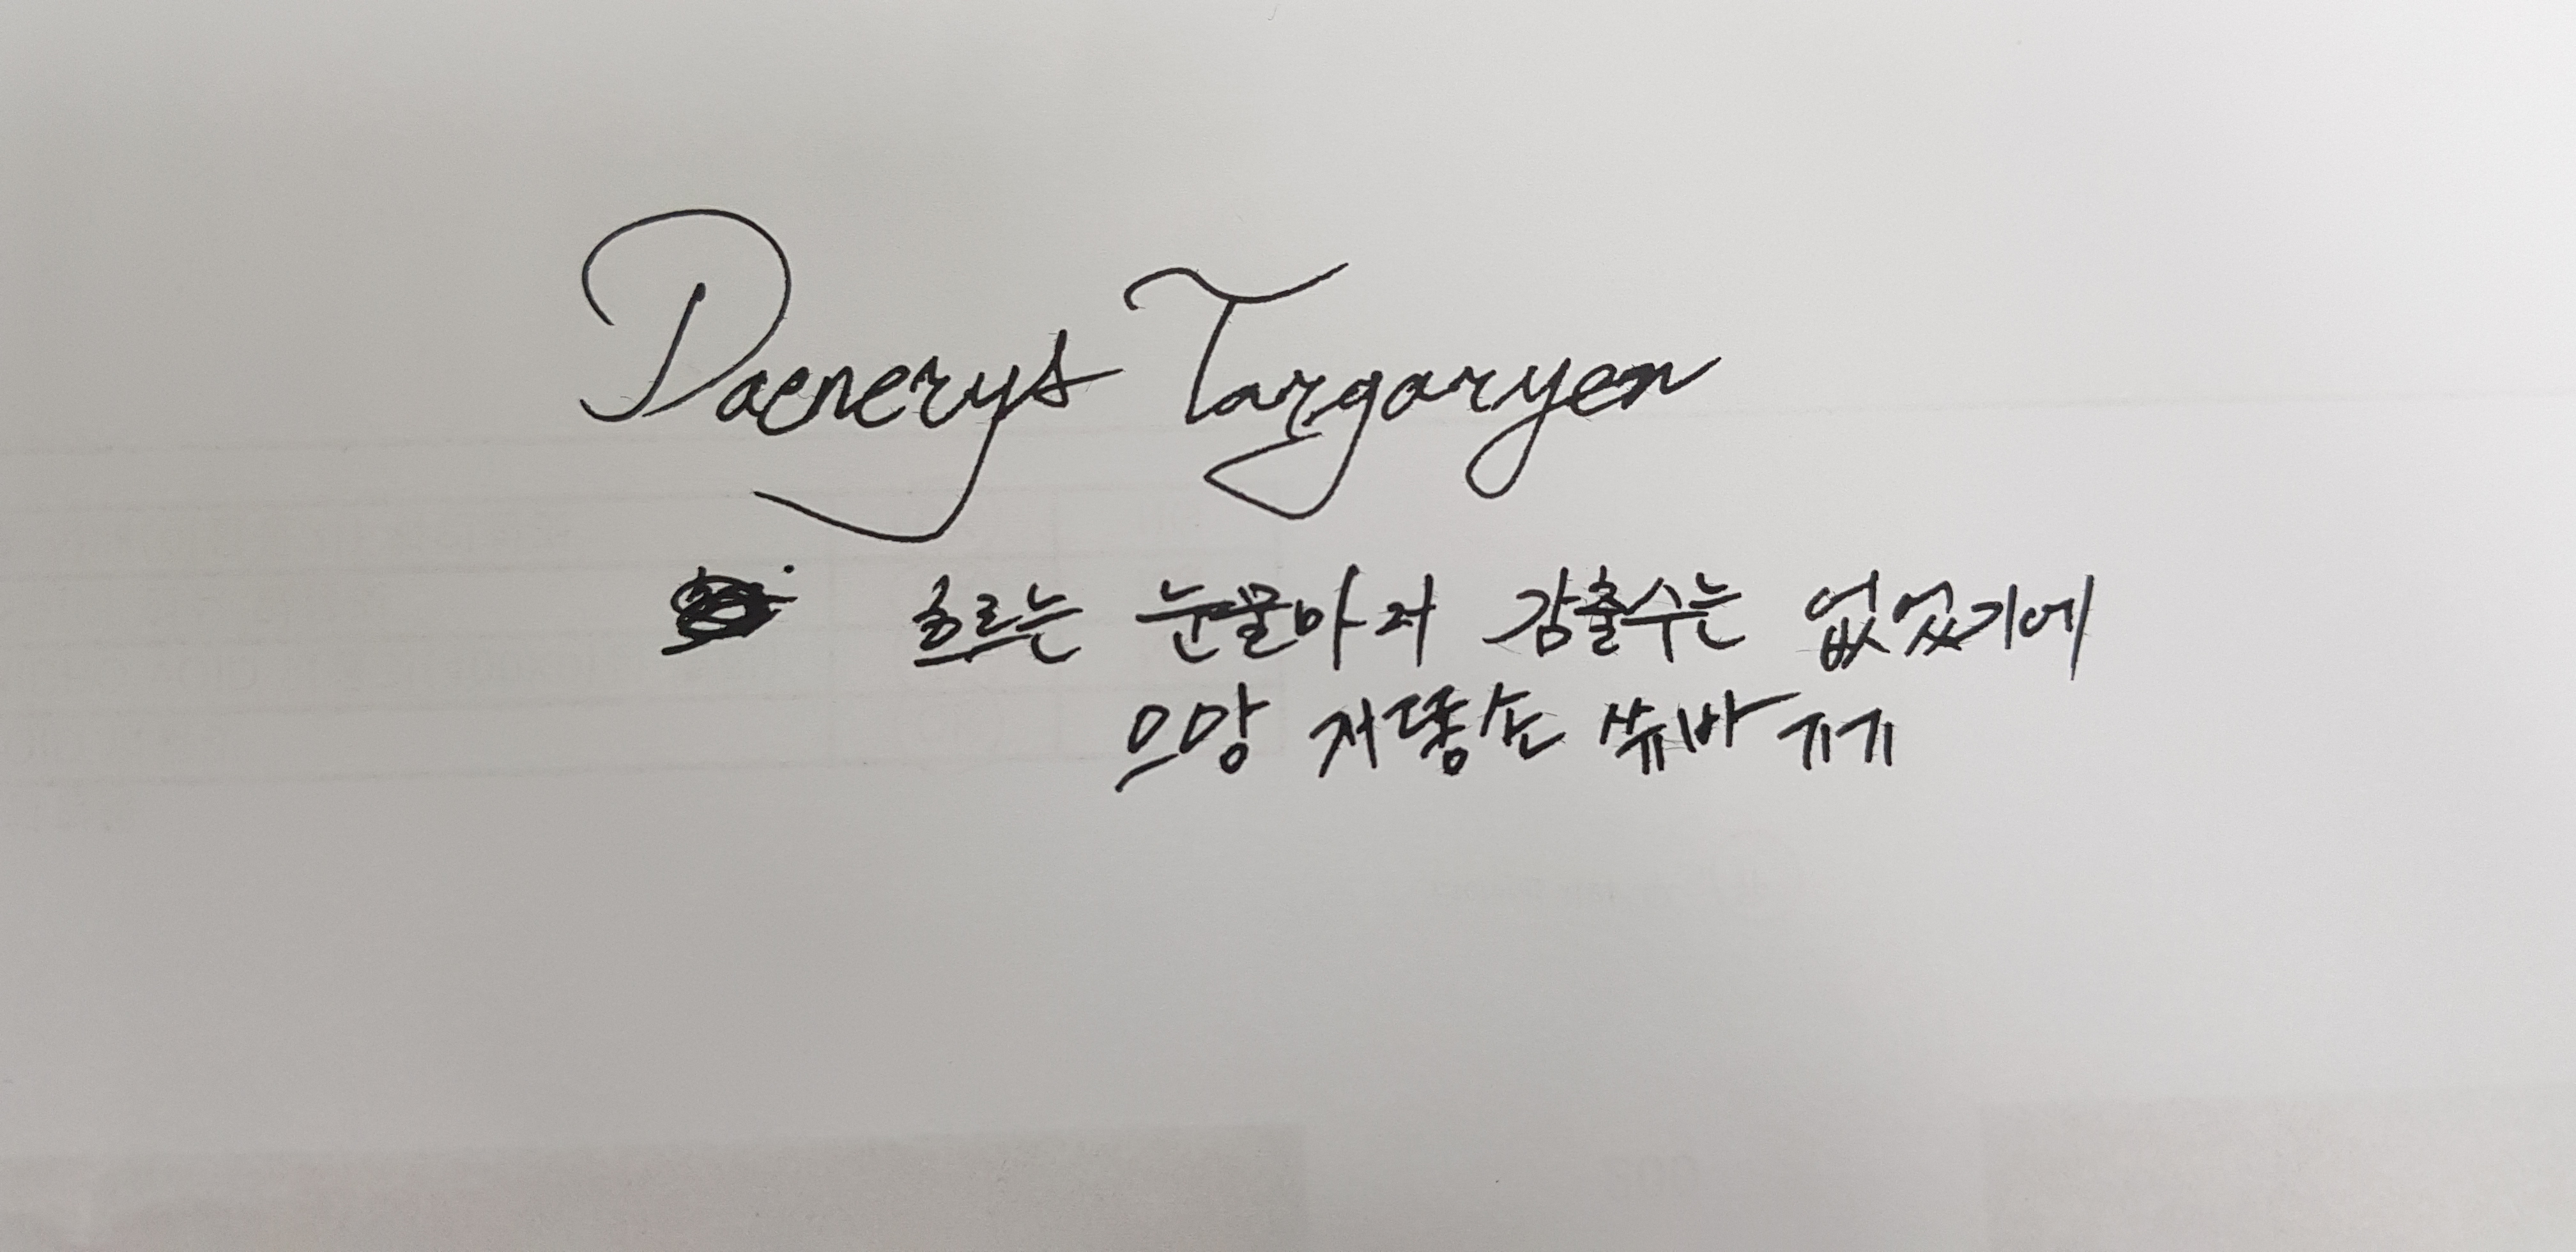 Daenerys Targaryen
흐르는 눈물마저 감출수는 없었기에
으망 저똥손 쓔바 ㄲㄲ